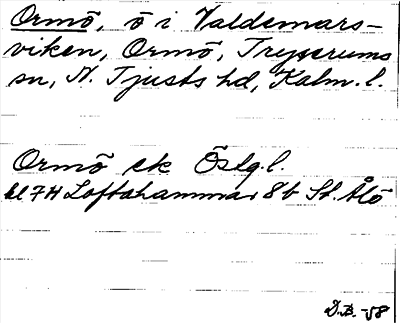 Ormö, ö i Valdemars-
viken, Ormö, Tryserums
sn, N. Tjusts hd, Kalm. l.
Ormö ek Östg. l.
bl 7H Loftahammar 8b St. Ålö
D.B. -58